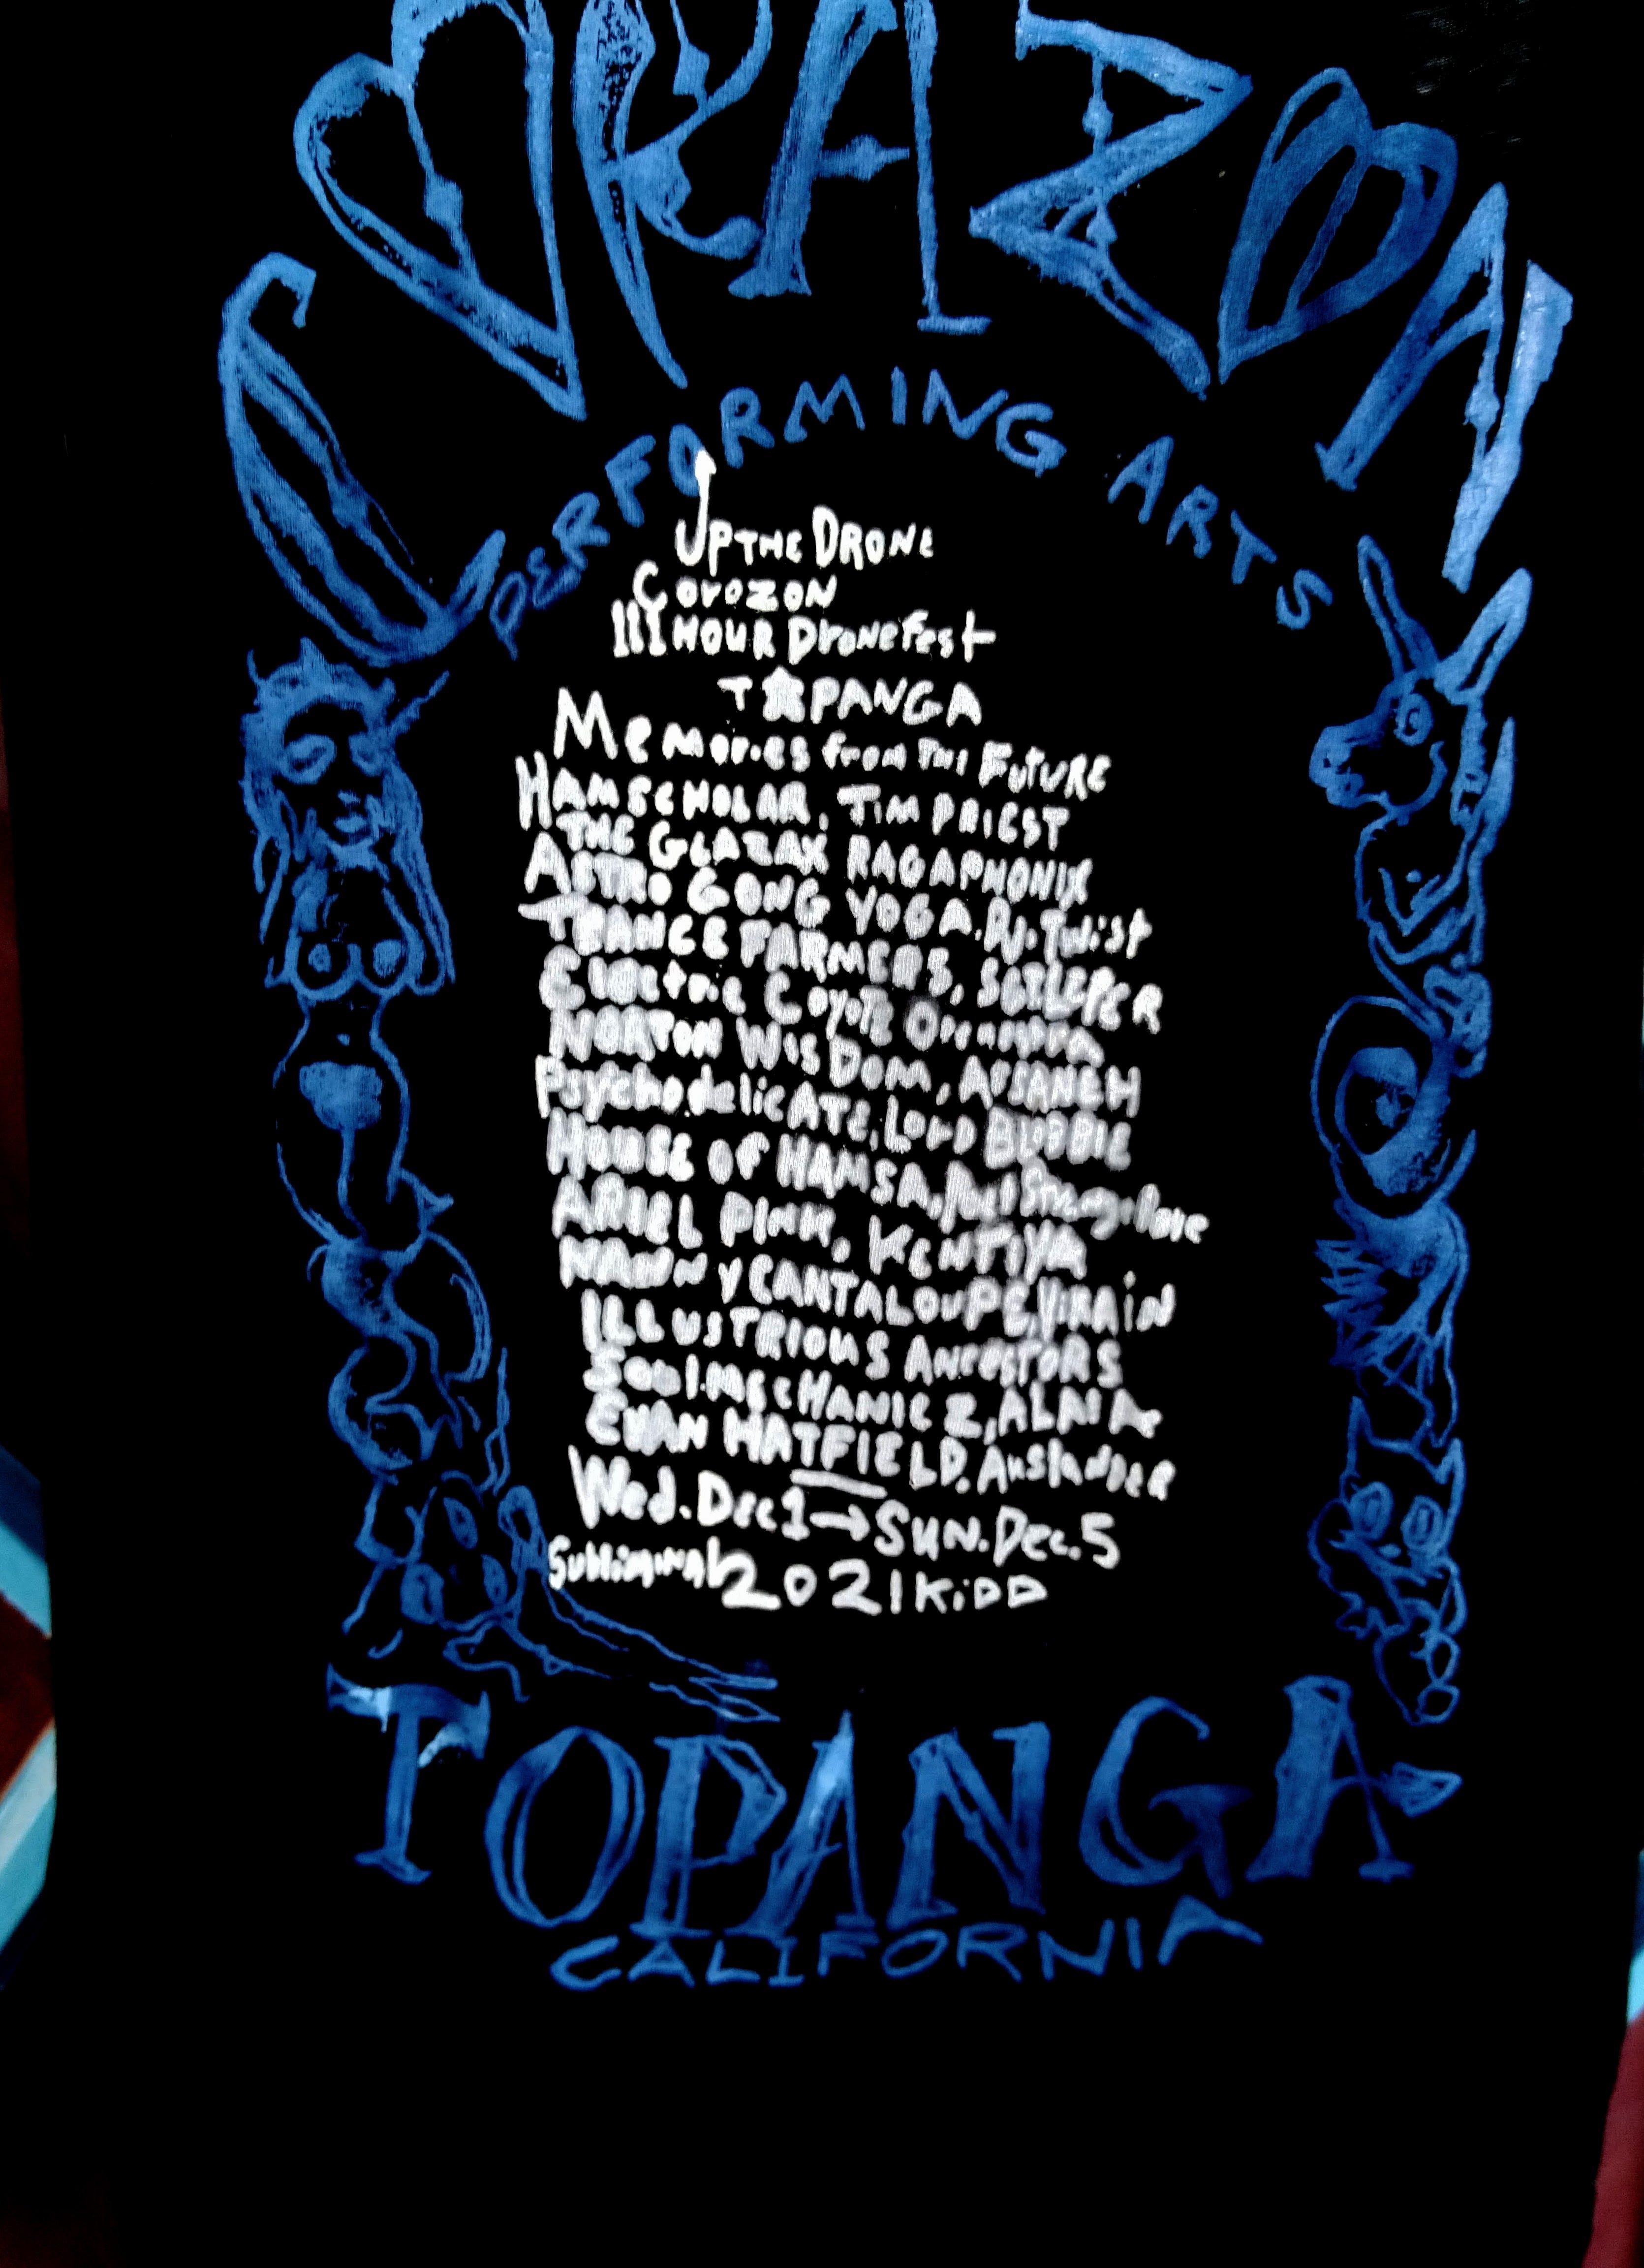 CORAZON
PERFORMING ARTS
UP THE DRONE
CorozoN
111 HOUR DroneFest
T PANGA
Memories from THE FUTURE
HAMSCHOLAR, TIM PRIEST
THE GLAZAX RAGAPHONIX
ASTRO GONG YOGA. DJ. Twist
TRANCE FARMERS,
Electric Coyote
NORTON WISDOM, AFSANEH
PsychodelicATE, Lord
HOUSE OF HAMSA,
ARIEL PINK, KENTIYA
CANTALOUPE,
ILLUSTRIOUS ANCESTORS
Soul.mecHANICZ,
EVAN HATFIELD. AuslandER
Wed. Dec 1 → SUN. Dec. 5
Subliminal 2021 KiDD
TOPANGA
CALIFORNIA